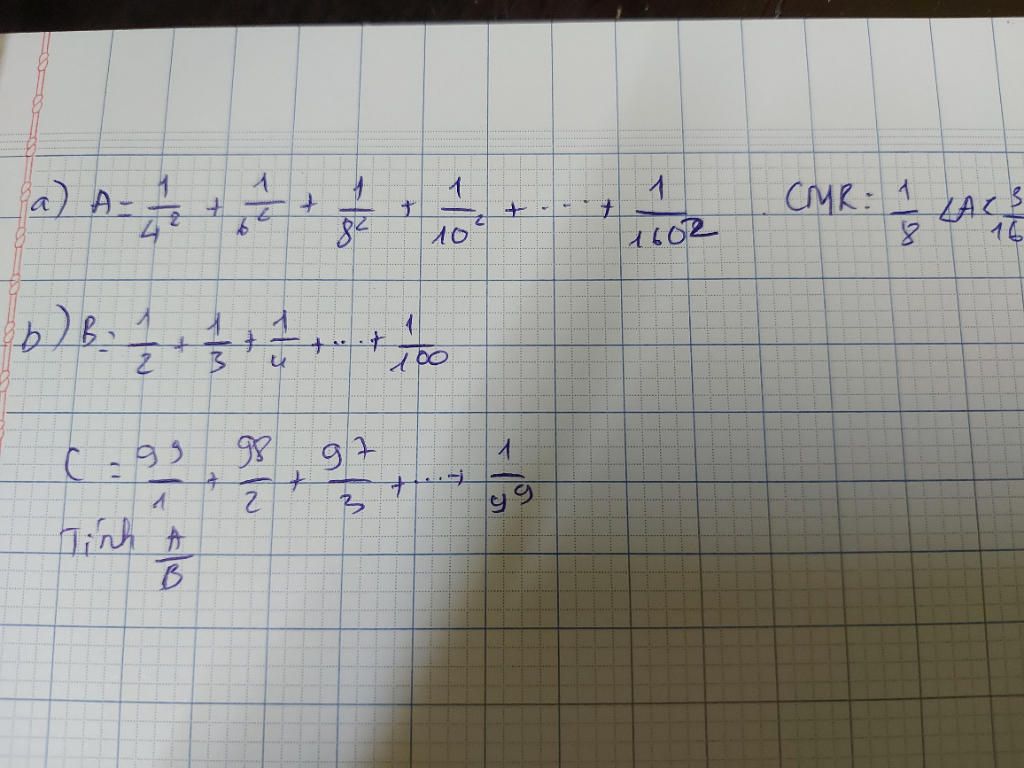 a) A = 1/4² + 1/6² + 1/8² + 1/10² + ... + 1/160² . CMR: 1/8 < A < 3/16
b) B = 1/2 + 1/3 + 1/4 + ... + 1/100
C = 99/1 + 98/2 + 97/3 + ... + 1/99
Tính A/B